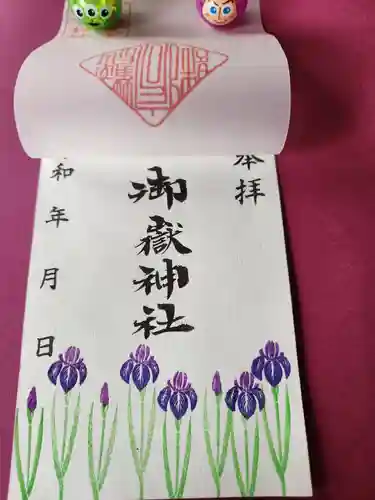 奉拝
御嶽神社
令和 年 月 日